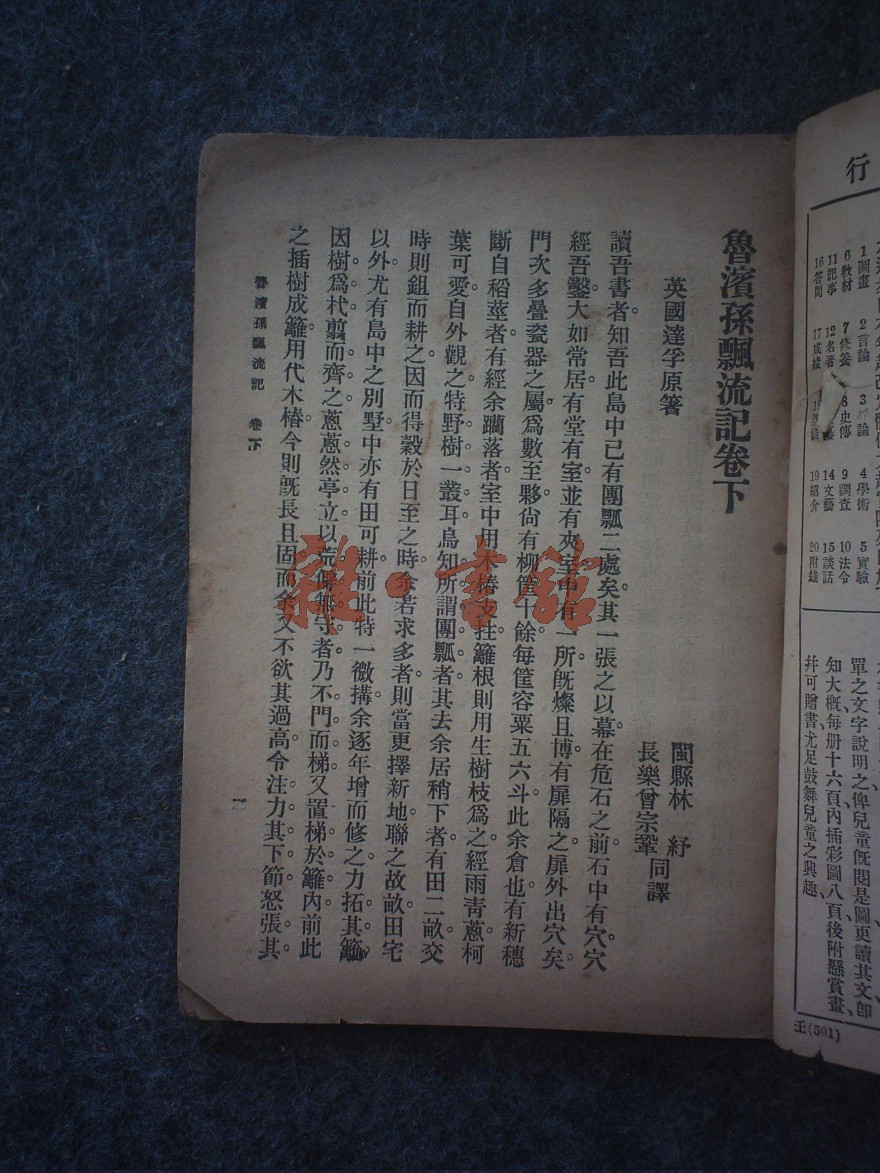 行
1圖畫 2言論 3評論 4學術 5實驗
6教材 7修養 8史傳 9調查 10法令
11記事 12名著 14文藝 15談話
16答問 17成績 19紹介 20附錄
單之文字說明之俾兒童旣閱是圖更讀其文卽
知大槪每册十六頁內插彩圖八頁後附懸賞畫
幷可贈書尤足鼓舞兒童之興趣
王(501)
魯濱孫飄流記卷下
英國達孚原著
閩縣林紓
長樂曾宗鞏
同譯
讀吾書者。知吾此島中已有團瓢二處矣。其一張之以幕。在危石之前。石中有穴。穴
經吾鑿。大如常居。有堂有室。並有夾室。中有一所。旣燦且博。有扉隔之。扉外出穴矣。
門次多疊瓷器之屬。爲數至夥。尙有柳筐十餘。每筐容粟五六斗。此余倉也。有新穗
斷自稻莖者。有經余躪落者。室中用木樁支拄。籬根則用生樹枝爲之。經雨靑蔥。柯
葉可愛。自外觀之。特野樹一叢耳。烏知所謂團瓢者。其去余居稍下者。有田二畝。交
時則鉏而耕之。因而得穀於日至之時。余若求多者。則當更擇新地聯之。故畝田宅
以外。尤有島中之別墅。中亦有田可耕。前此特一微搆。余逐年增而修之。力拓其籬。
因樹爲杙。翦而齊之。蔥蔥然亭立。以荒僻無守者。乃不門而梯。又置梯於籬內。前此
之插樹成籬。用代木樁。今則旣長且固。而余又不欲其過高。令注力其下節。怒張其
魯濱孫飄流記 卷下
一
雜·書館